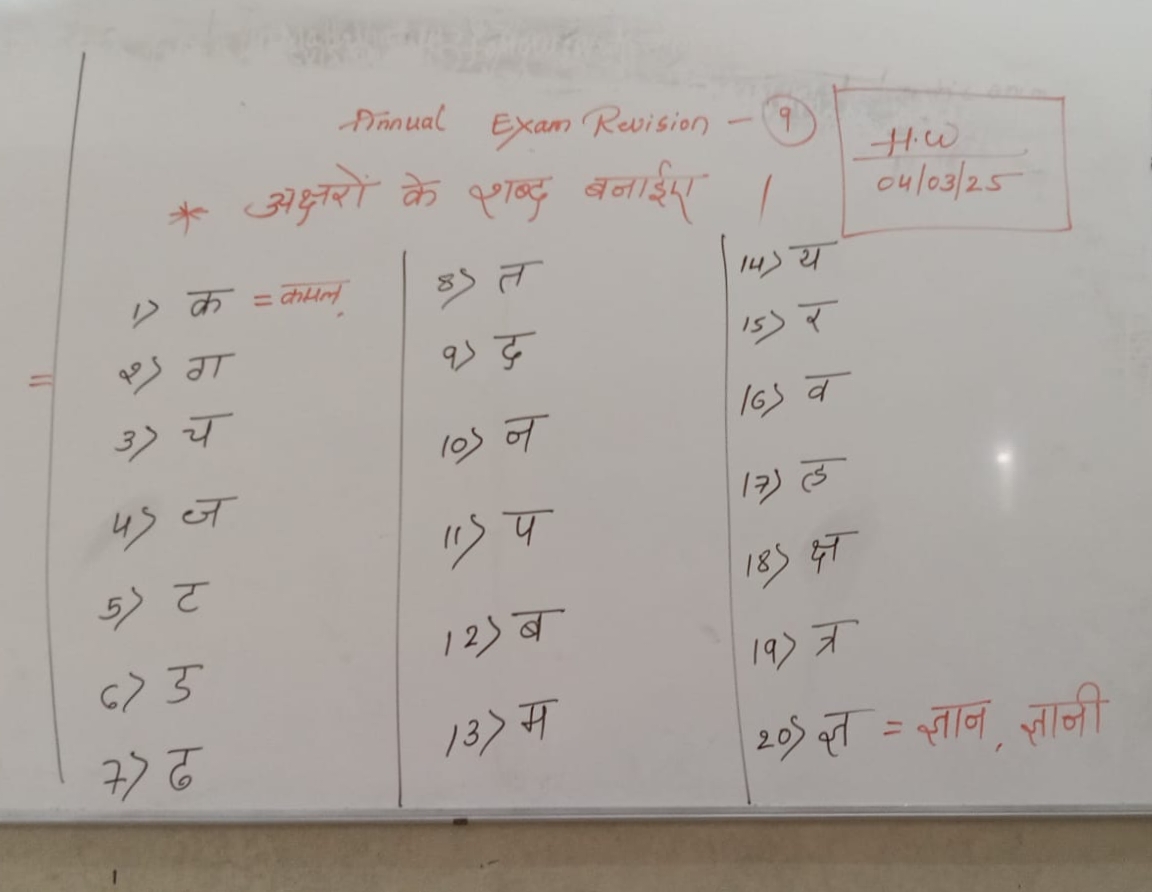 Annual Exam Revision - 9
H.W
04/03/25
* अक्षरों के शब्द बनाईए |
1) क = कमल,
2) ग
3) च
4) ज
5) ट
6) ड
7) ढ
8) त
9) द
10) न
11) प
12) ब
13) म
14) य
15) र
16) व
17) ह
18) क्ष
19) त्र
20) ज्ञ = ज्ञान, ज्ञानी